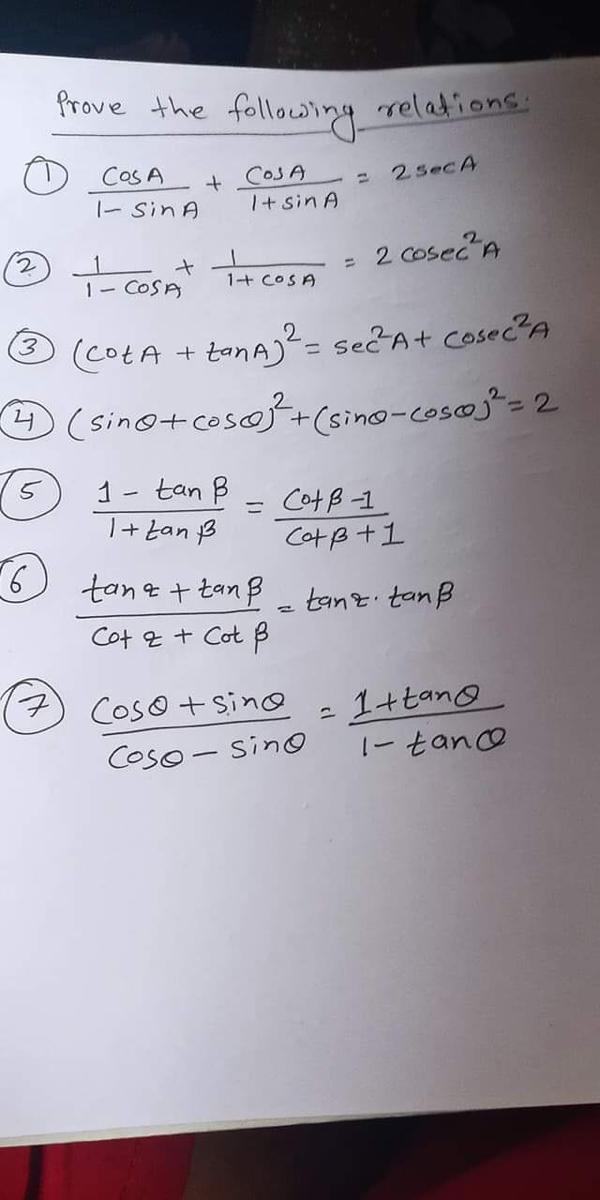 Prove the following relations.
① CosA / 1 - SinA + CosA / 1 + sinA = 2 secA
② 1 / 1 - CosA + 1 / 1 + cosA = 2 cosec²A
③ (cotA + tanA)² = sec²A + cosec²A
④ (sinθ + cosθ)² + (sinθ - cosθ)² = 2
⑤ 1 - tanβ / 1 + tanβ = Cotβ - 1 / Cotβ + 1
⑥ tan2 + tanβ / Cot2 + Cotβ = tan2 · tanβ
⑦ Cosθ + sinθ / Cosθ - sinθ = 1 + tanθ / 1 - tanθ